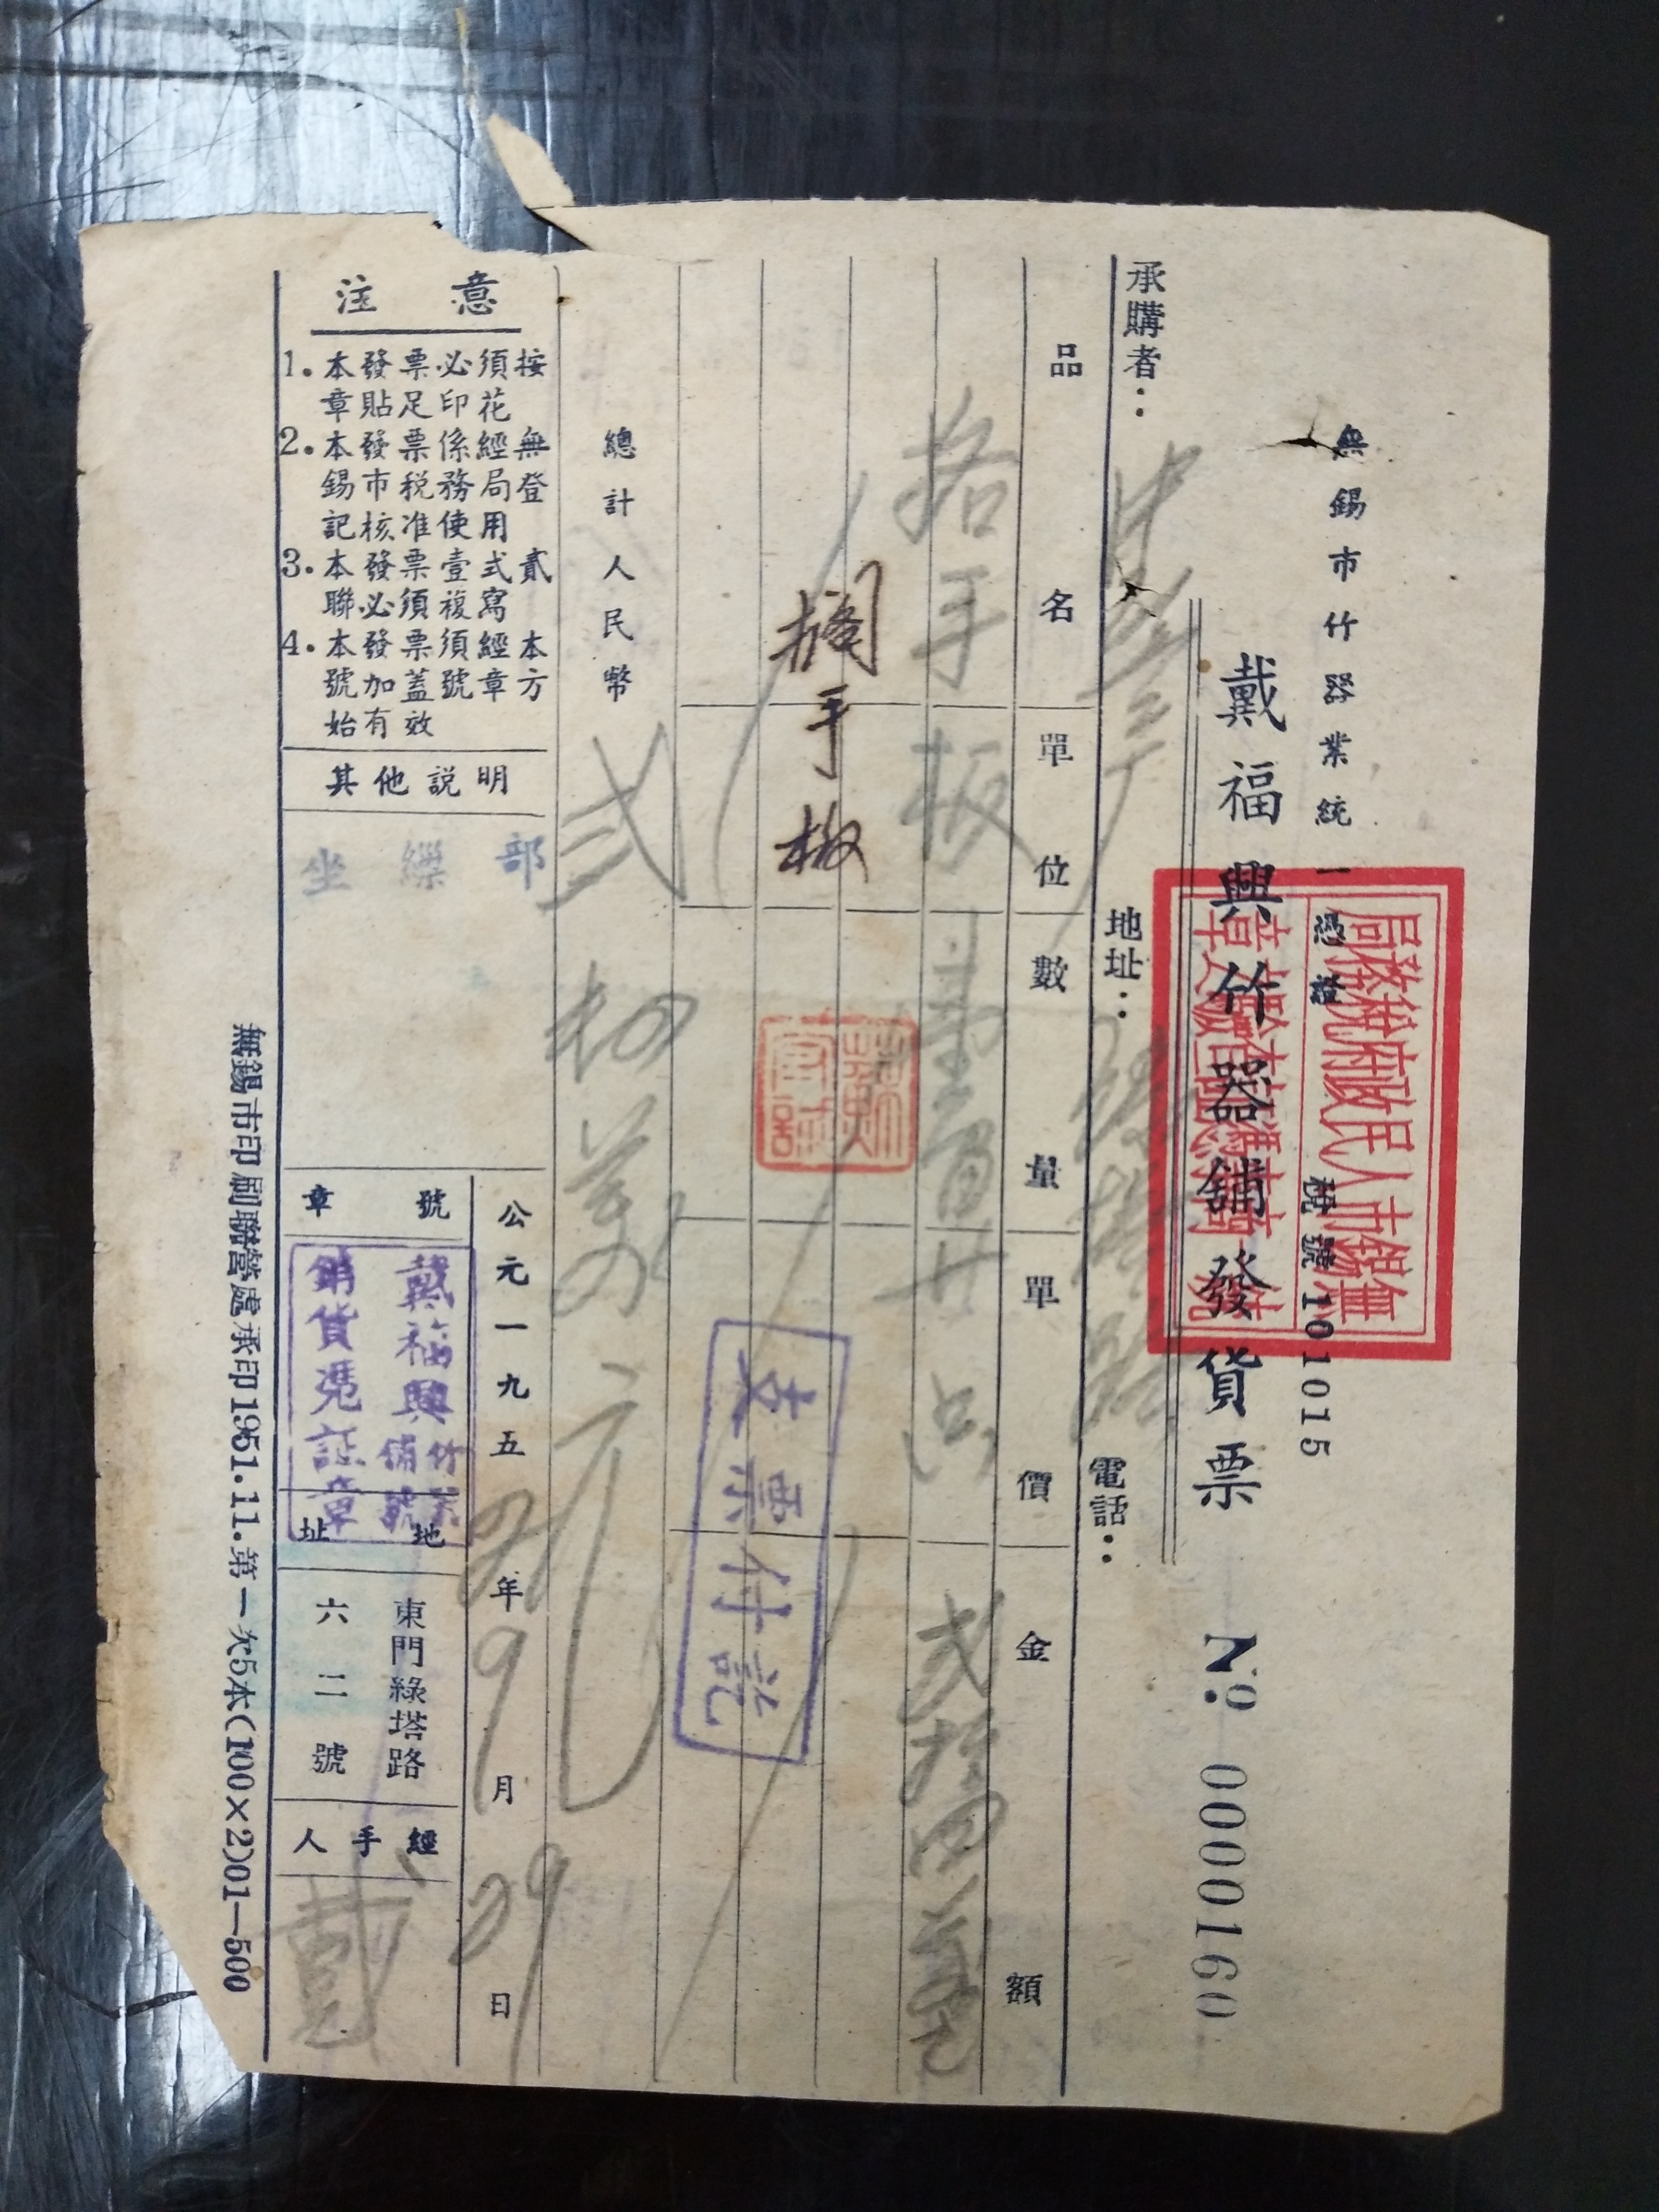 無錫市竹器業統一憑證
稅號101015
無錫市人民政府稅務局
戴福興竹器舖發貨票
№ 0000160
承購者：
地址：
電話：
品名
單位
數量
單價
金額
手板
壹百廿只
弍拾四萬元
擱手板
支票付訖
總計人民幣
弍拾四萬元
公元一九五2年9月29日
注意
1.本發票必須按
章貼足印花
2.本發票係經無
錫市稅務局登
記核准使用
3.本發票壹式貳
聯必須複寫
4.本發票須經本
號加蓋號章方
始有效
其他說明
坐繅部
號章
戴福興竹器舖號
銷貨憑証章
地址
東門綠塔路
六二號
經手人
戴
無錫市印刷聯營處承印1951.11.第一次5本(100×2)01—500